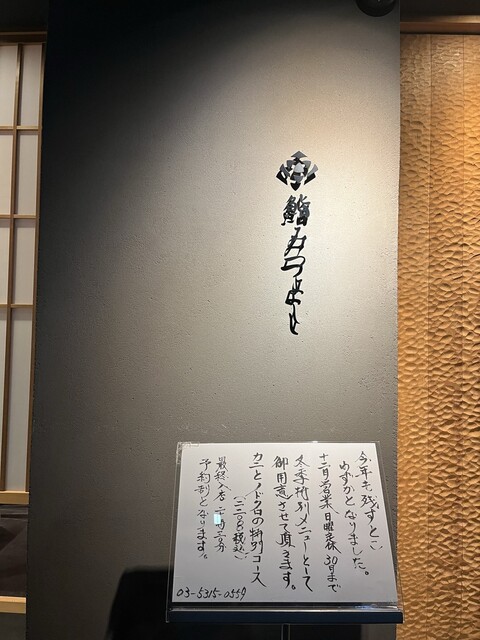 鮨みつよし
今年も残すところ
わずかとなりました。
十二月の営業、日曜定休 30日まで
冬季特別メニューとして
御用意させて頂きます。
カニとノドグロの特別コース
(税込)
最終入店
予約制となります。
03-5315-0559